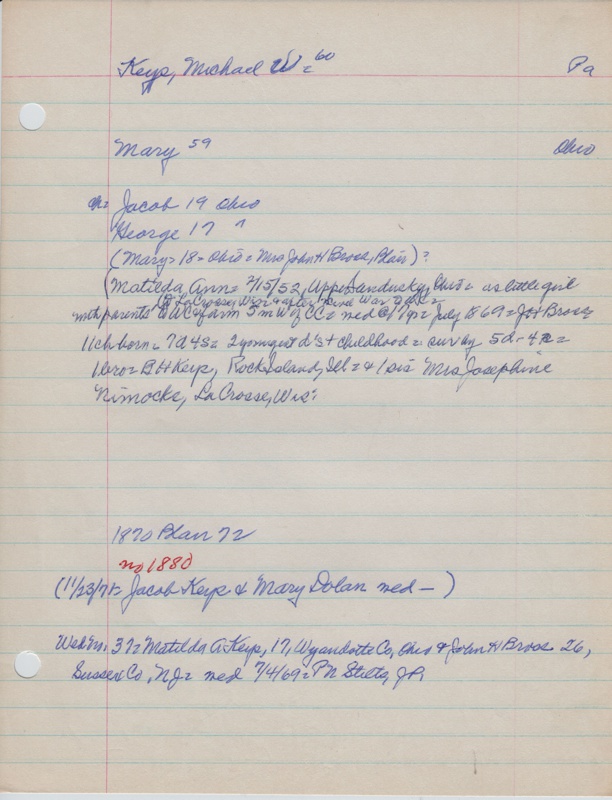 Keys, Michael W = 60 Pa
Mary 59 Ohio
ch= Jacob 19 Ohio
George 17 "
(Mary = 18 = Ohio = Mrs John H Brose, Plain) ?
(Matilda, Ann = 7/15/52, Upper Sandusky, Ohio = as little girl
to LaCrosse, Wis = & after Civil War
with parents to WC farm 5 m W of CC = med @ 17 yr = July 1869 = J H Brose
11 ch born = 7d 4s = 2 youngest d's + childhood = surv by 5d - 4s =
1 bro = B H Keys, Rock Island, Ill = & 1 sis Mrs Josephine
Nimocks, La Crosse, Wis.
1870 Plain 72
no 1880
(11/23/71 = Jacob Keys & Mary Dolan med — )
Web m. 37 = Matilda A. Keys, 17, Wyandotte Co, Ohio & John H Brose 26,
Sussex Co, NJ = med 7/4/69 = P N JP,